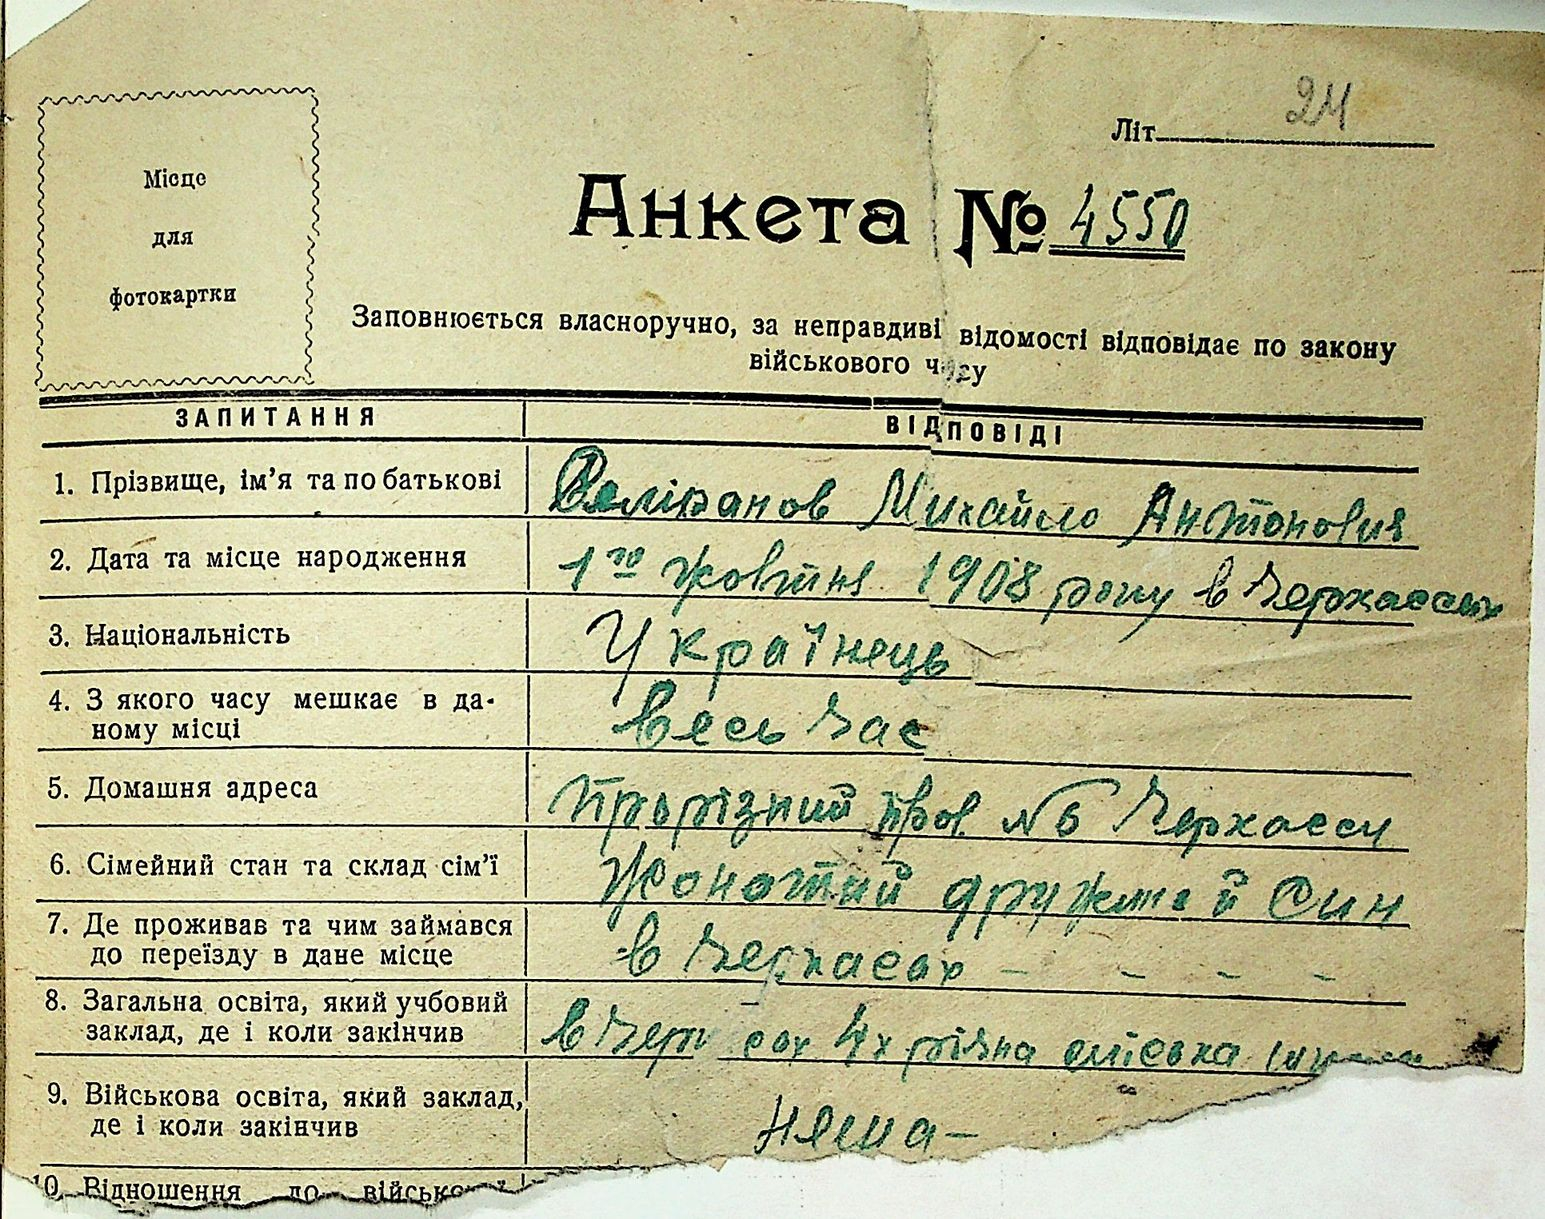 24
Літ.
Місце
для
фотокартки
Анкета № 4550
Заповнюється власноручно, за неправдиві відомості відповідає по закону
військового часу
ЗАПИТАННЯ ВІДПОВІДІ
1. Прізвище, ім'я та по батькові Веліканов Михайло Антонович
2. Дата та місце народження 1го жовтня 1908 року в Черкассах
3. Національність Українець
4. З якого часу мешкає в да-
ному місці весь час
5. Домашня адреса Прорізний пров № 6 Черкасси
6. Сімейний стан та склад сім'ї Жонотий дружина й син
7. Де проживав та чим займався
до переїзду в дане місце в Черкасах - - - -
8. Загальна освіта, який учбовий
заклад, де і коли закінчив в Чер сах 4х річна міська
9. Військова освіта, який заклад,
де і коли закінчив нема -
10. Відношення до військо